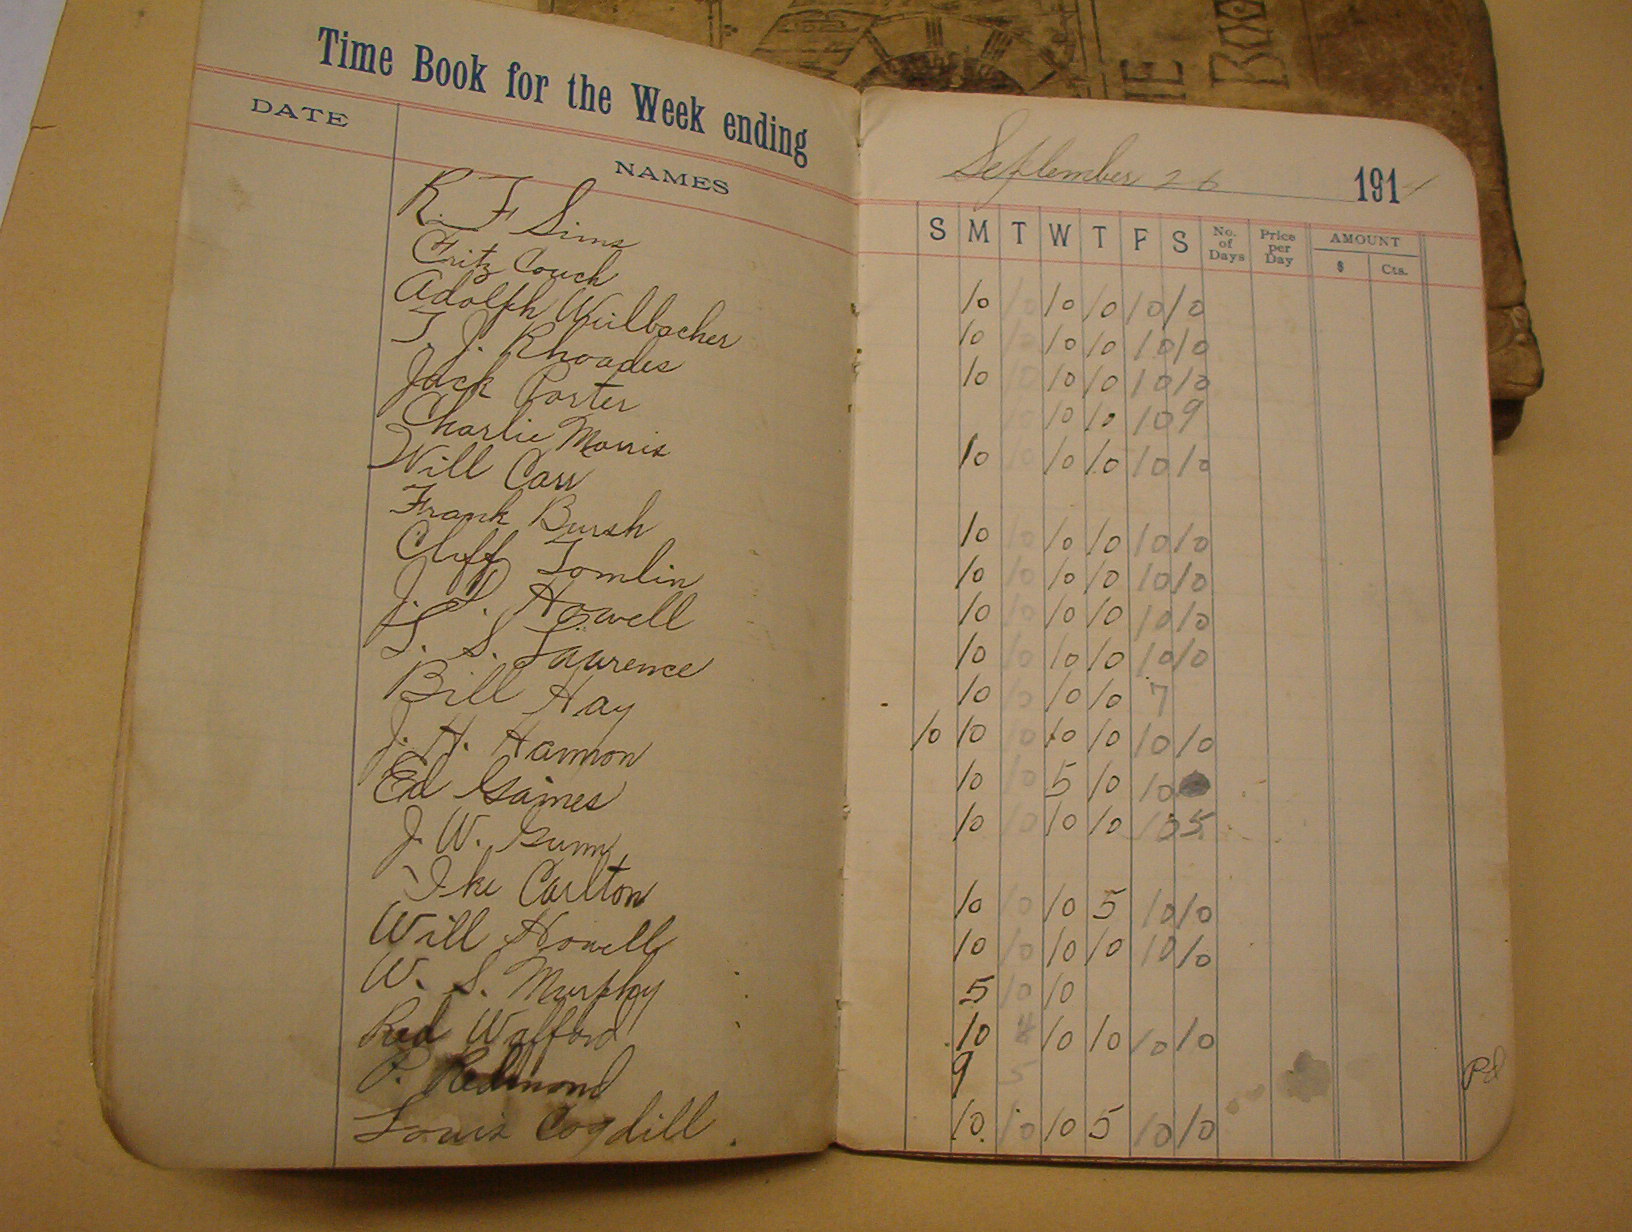 Time Book for the Week ending
DATE NAMES
R. F Sims
Fritz Couch
Adolph Weilbacher
T. J. Rhoades
Jack Porter
Charlie Morris
Will Carr
Frank Bursh
Cliff Tomlin
J. P. Howell
L. S. Lawrence
Bill Hay
J. H. Hannon
Ed Gaines
J. W. Gunn
Ike Carlton
Will Howell
W. S. Murphy
Red Walfford
P. Redmond
Louis Cogdill
September 26 1914
S M T W T F S No. of Days Price per Day AMOUNT $ Cts.
10 10 10 10 10 10
10 10 10 10 10 10
10 10 10 10 10 10
5 10 10 10 9
10 10 10 10 10 10
10 10 10 10 10 10
10 10 10 10 10 10
10 10 10 10 10 10
10 10 10 10 10 10
10 10 10 10 7
10 10 10 10 10 10 10
10 10 5 10 10
10 10 10 10 10 5
10 10 10 5 10 10
10 10 10 10 10 10
5 10 10
10 4 10 10 10 10
9 5 Pd
10 10 10 5 10 10
ME
BOO